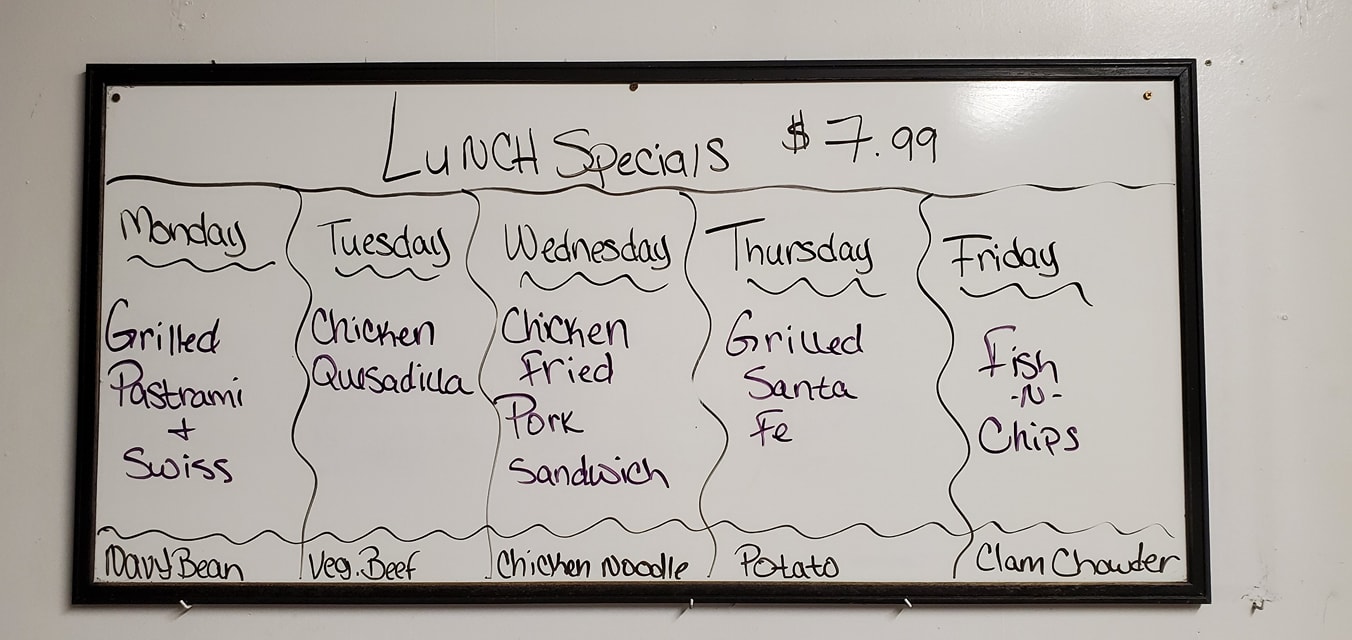 Lunch Specials $7.99
Monday
Grilled
Pastrami
+
Swiss
Tuesday
Chicken
Quesadilla
Wednesday
Chicken
Fried
Pork
Sandwich
Thursday
Grilled
Santa
Fe
Friday
Fish
-N-
Chips
Navy Bean
Veg. Beef
Chicken Noodle
Potato
Clam Chowder